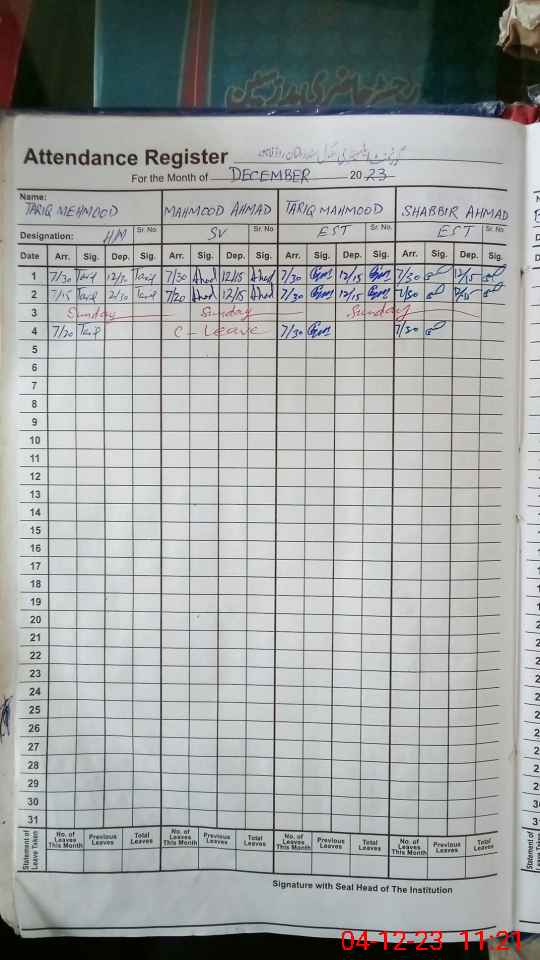 Attendance Register
For the Month of DECEMBER 2023
Name:
TARIQ MEHMOOD MAHMOOD AHMAD TARIQ MAHMOOD SHABBIR AHMAD
Designation: HM Sr. No SV Sr. No EST Sr. No EST Sr. No
Date Arr. Sig. Dep. Sig. Arr. Sig. Dep. Sig. Arr. Sig. Dep. Sig. Arr. Sig. Dep. Sig.
1 7/30 Tariq Tariq 7/30 12/15 7/30 12/15 7/30 12/15
2 7/15 Tariq 2/30 Tariq 7/20 12/15 7/30 12/15 7/30 12/15
3 Sunday Sunday Sunday
4 7/20 Tariq C-Leave 7/30 7/30
5
6
7
8
9
10
11
12
13
14
15
16
17
18
19
20
21
22
23
24
25
26
27
28
29
30
31
Statement of Leave Taken No. of Leaves This Month Previous Leaves Total Leaves No. of Leaves This Month Previous Leaves Total Leaves No. of Leaves This Month Previous Leaves Total Leaves No. of Leaves This Month Previous Leaves Total Leaves
Signature with Seal Head of The Institution
04-12-23 11:21